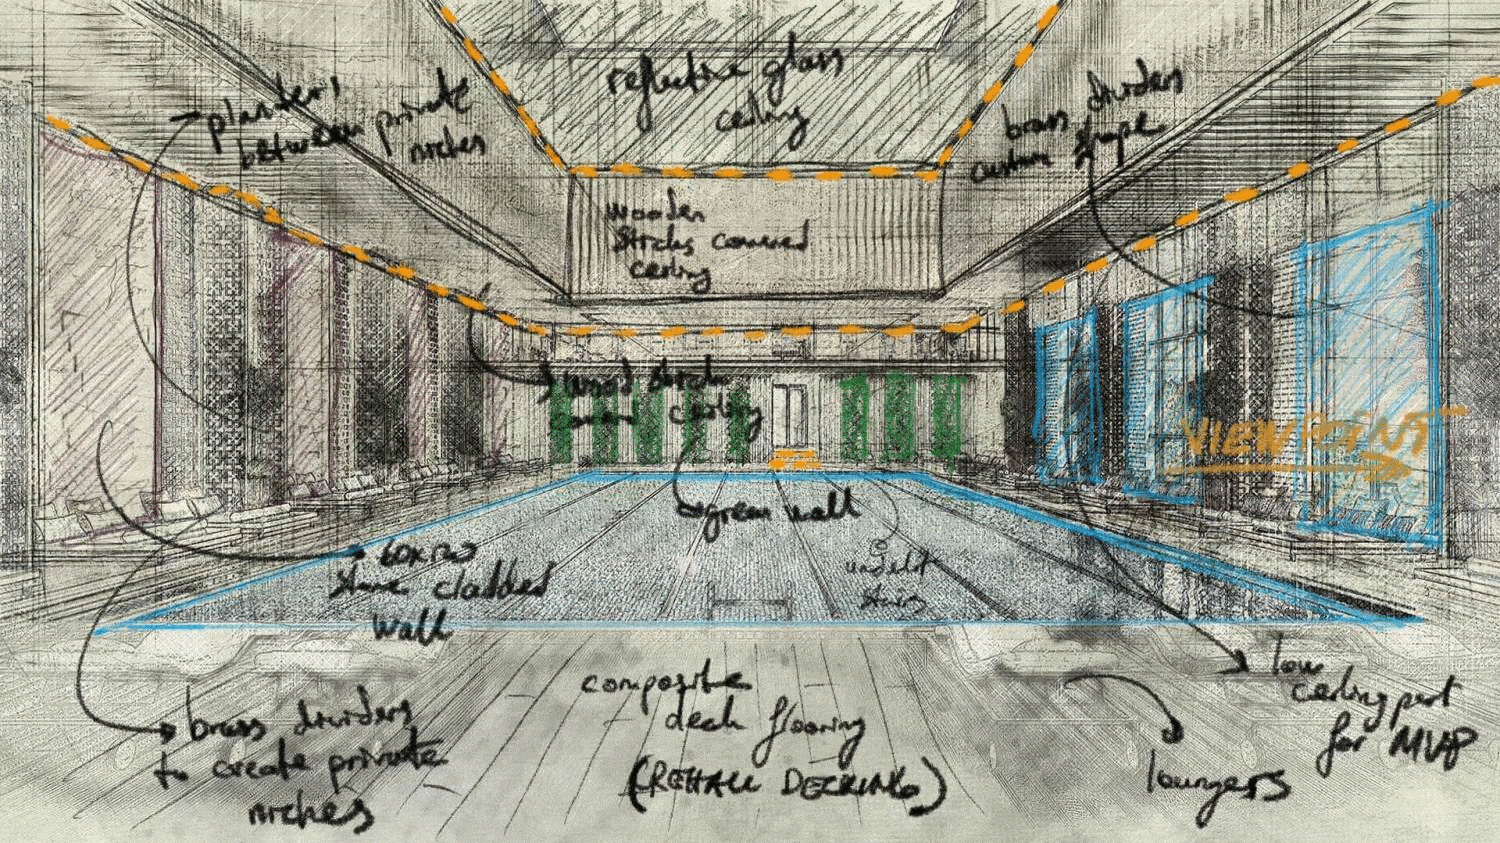 planters
between private
niches
reflective glass
ceiling
brass dividers
custom shape
wooden
sticks covered
ceiling
wood stick
ceiling
VIEWPOINT
green wall
60x120
stone cladded
wall
stairs
brass dividers
to create private
niches
composite
deck flooring
(REHAU DECKING)
low
ceiling part
for MVP
loungers